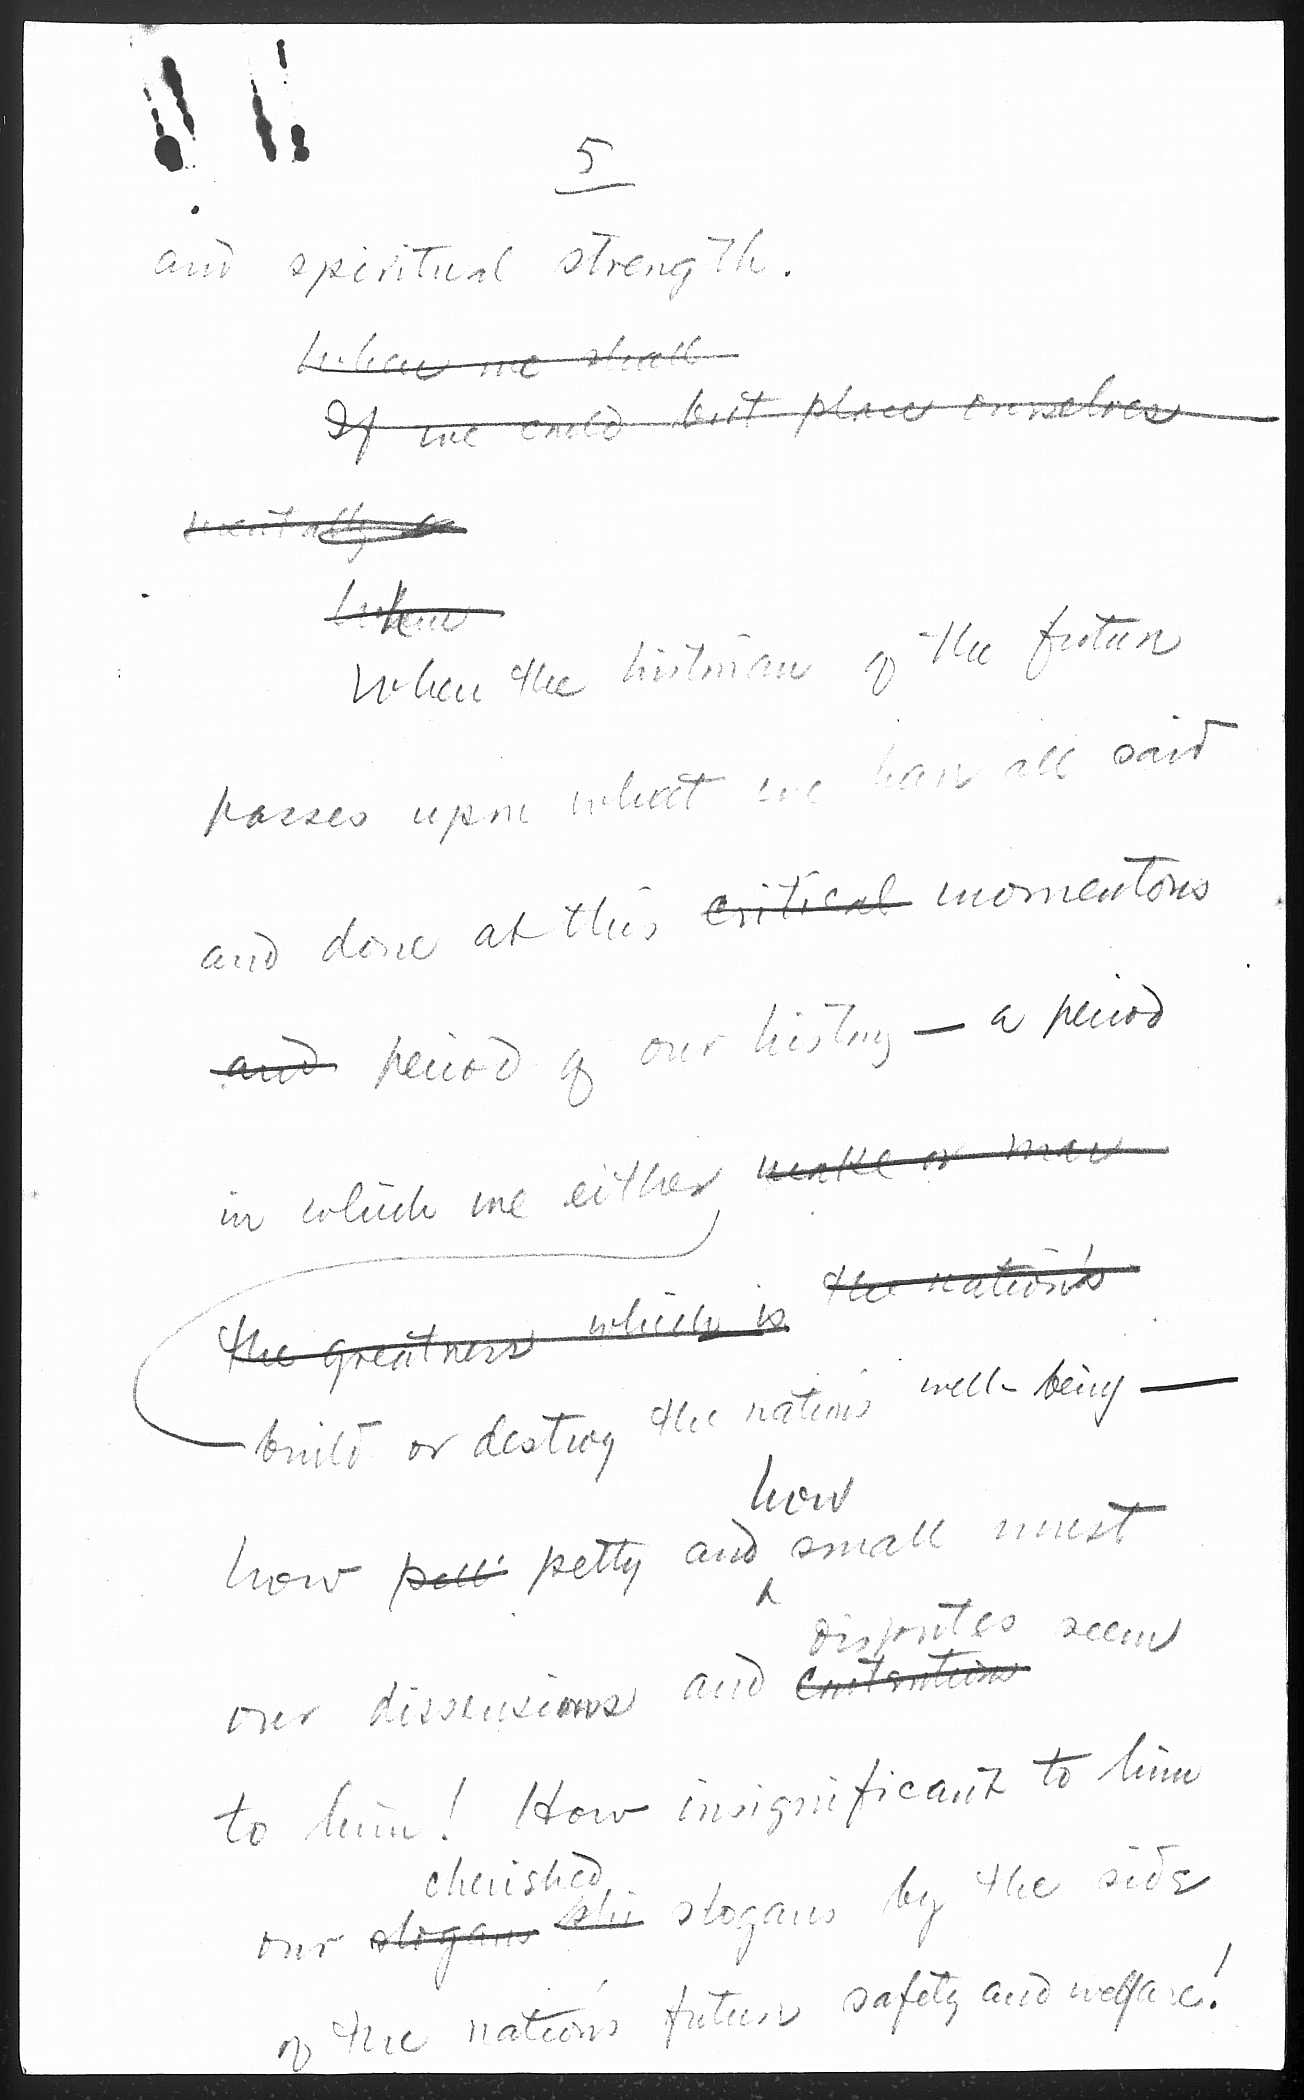 5
and spiritual strength.
When we shall
If we could but place ourselves
mentally
When
When the historian of the future
passes upon what we have all said
and done at this critical momentous
and period of our history — a period
in which we either make or mar
the greatness which is the nation's
build or destroy the nation's well-being —
how
how petty and small must
disputes seem
our dissensions and contentions
to him! How insignificant to him
cherished
our slogans slogans by the side
of the nation's future safety and welfare!